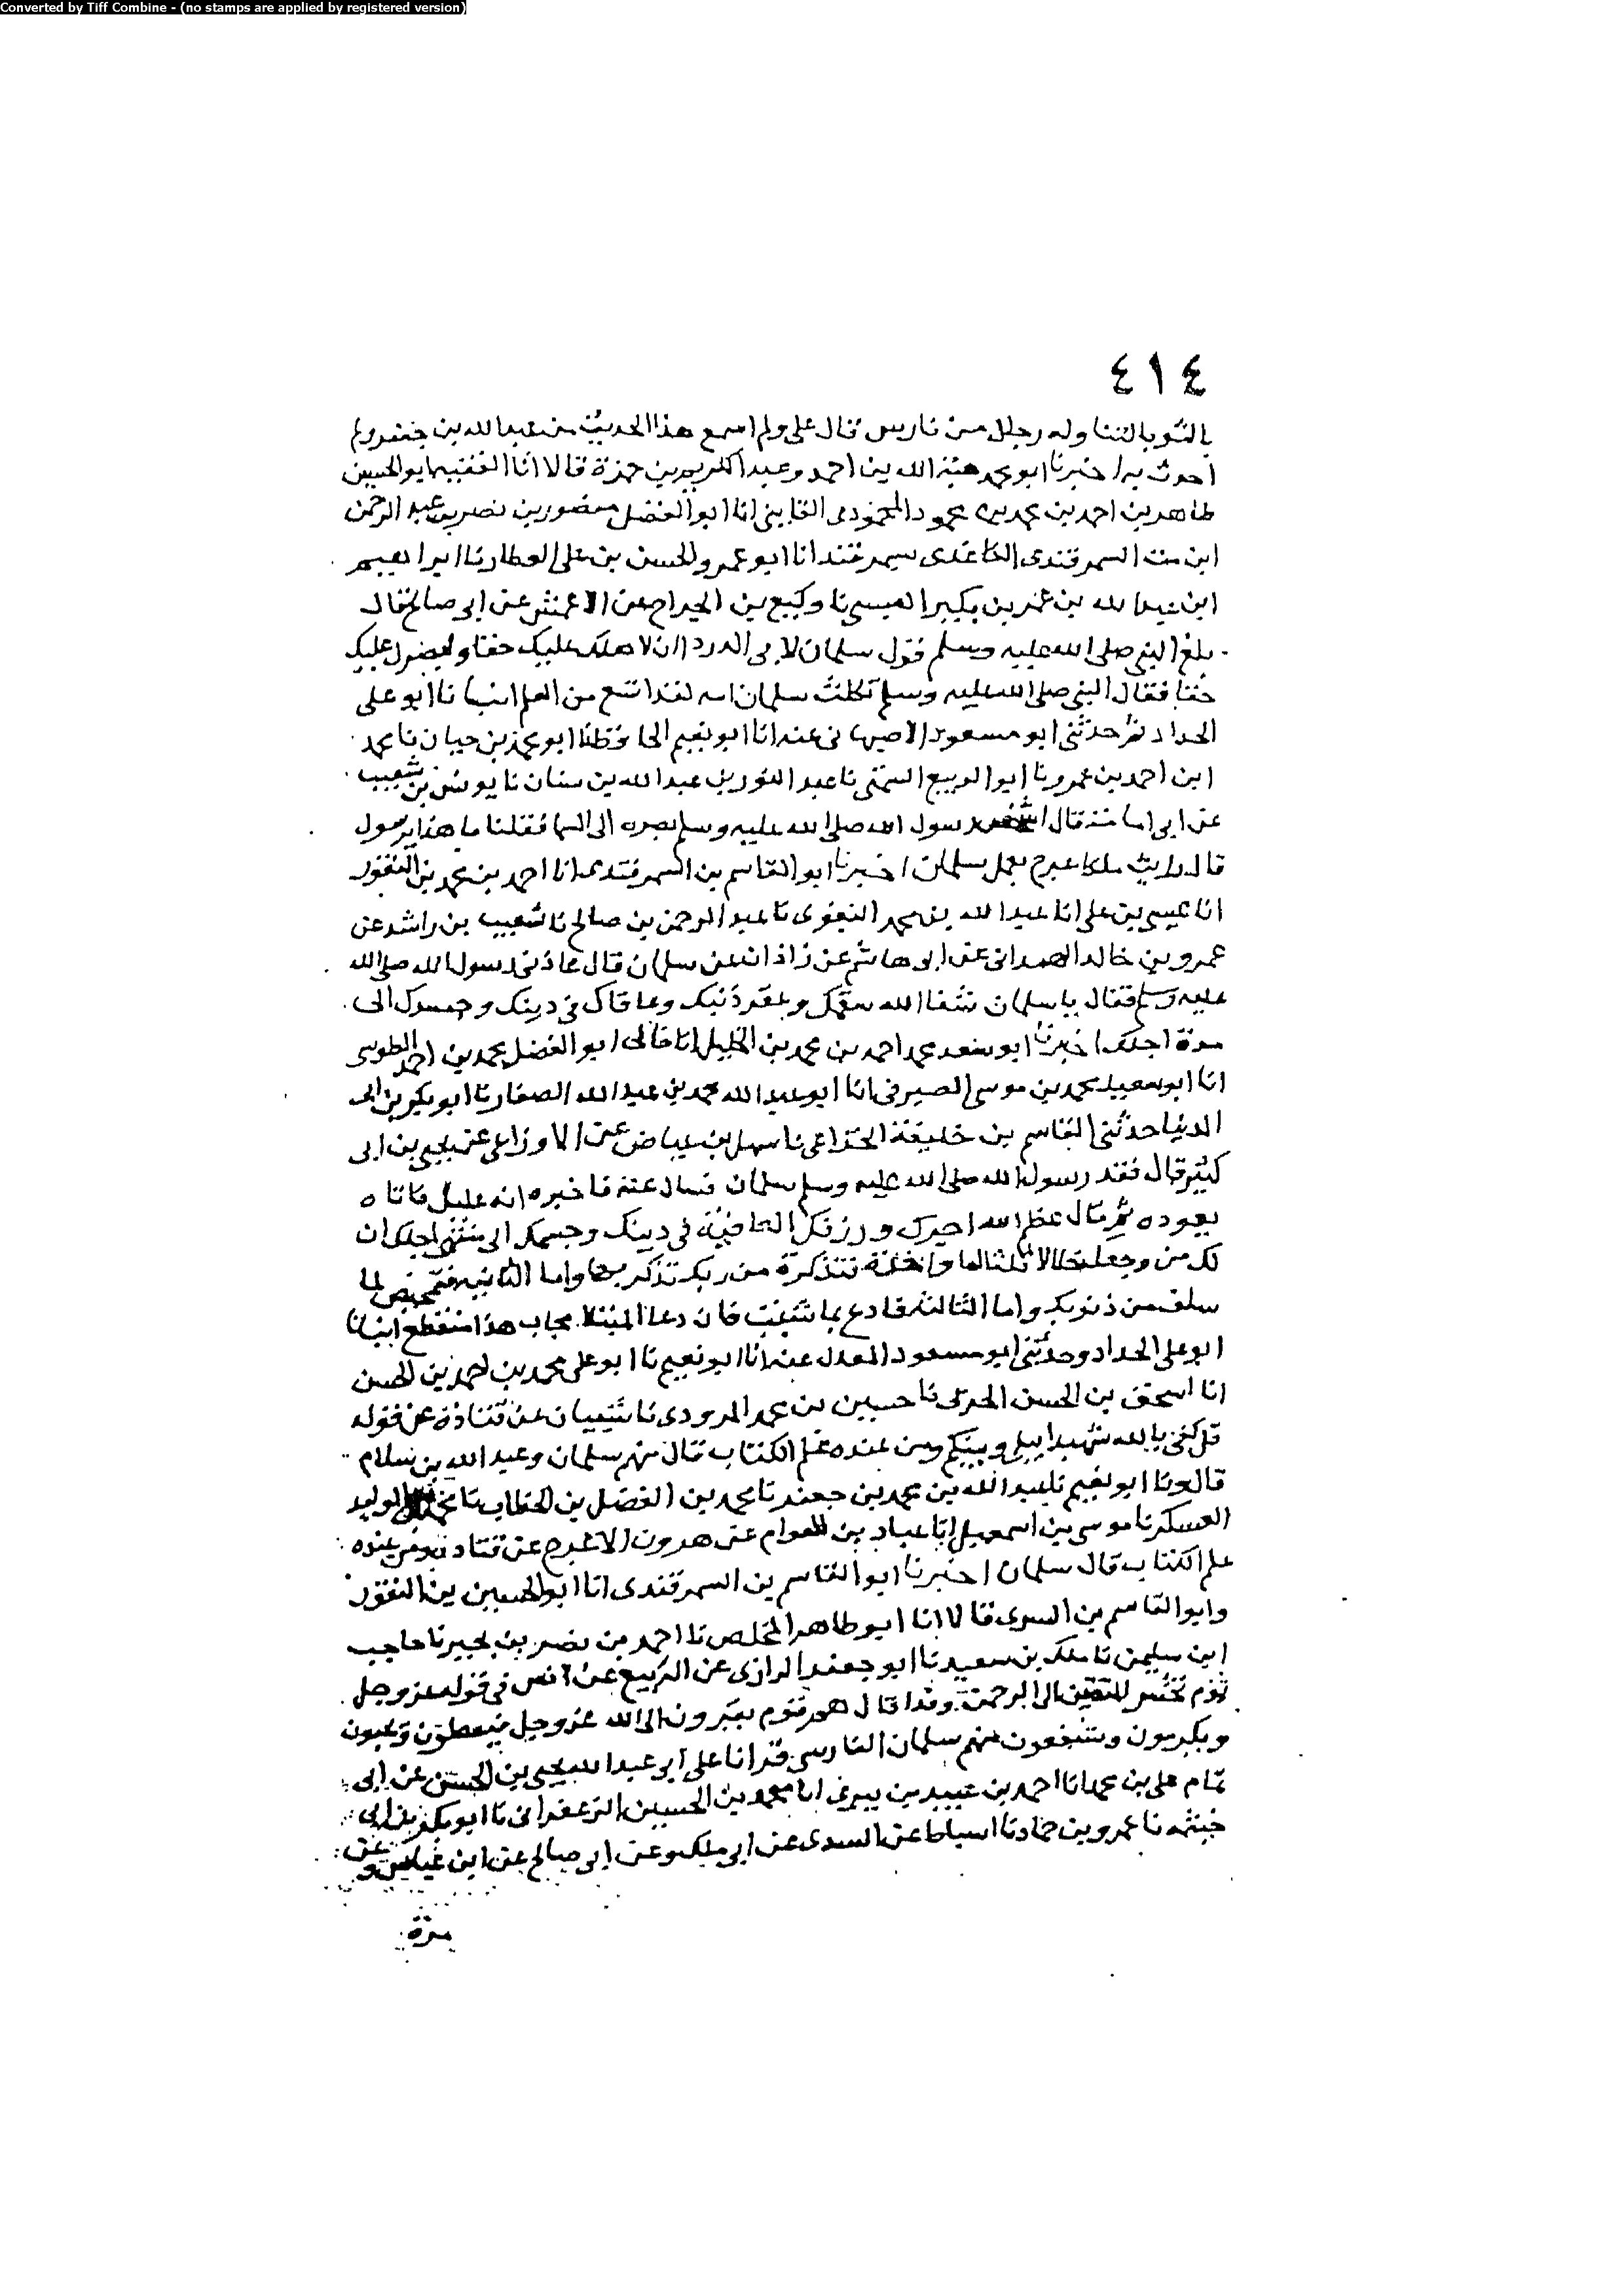 Converted by Tiff Combine - (no stamps are applied by registered version)
٤١٤
بالثريا لتناوله رجال من فارس قال علي ولم اسمع هذا الحديث من عبد الله بن جعفر ولم
احدث به اخبرنا ابو محمد هبة الله بن احمد وعبد الكريم بن حمزة قالا انا الفقيه ابو الحسين
طاهر بن احمد بن محمد بن محمود المحمودي القايني انا ابو الفضل منصور بن نصر بن عبد الرحمن
ابن بنت السمرقندي الكاغدي بسمرقند انا ابو عمرو الحسن بن علي العطار نا ابراهيم
ابن عبد الله بن عمر بن بكير العبسي نا وكيع بن الجراح عن الاعمش عن ابي صالح قال
بلغ النبي صلى الله عليه وسلم قول سلمان لابي الدردا ان لاهلك عليك حقا ولبصرك عليك
حقا فقال النبي صلى الله عليه وسلم ثكلت سلمان امه لقد اتسع من العلم انبانا ابو علي
الحداد ثم حدثني ابو مسعود الاصبهاني عنه انا ابو نعيم الحافظ نا ابو محمد بن حيان نا محمد
ابن احمد بن عمرو نا ابو الربيع السمتي نا عبد النور بن عبد الله بن سنان نا يونس بن شعيب
عن ابي امامة قال رسول الله صلى الله عليه وسلم بصره الى السما فقلنا ما هذا يرسول
قال رايت ملكا عرج بعمل سلمان اخبرنا ابو القاسم بن السمرقندي انا احمد بن محمد بن النقور
انا عيسى بن علي انا عبد الله بن محمد البغوي نا عبد الرحمن بن صالح نا شعيب بن راشد عن
عمرو بن خالد الهمداني عن ابي هاشم عن زاذان عن سلمان قال عادني رسول الله صلى الله
عليه وسلم فقال يا سلمان شفا الله سقمك وغفر ذنبك وعافاك في دينك وجسدك الى
مدة اجلك اخبرنا ابو سعد محمد احمد بن محمد بن الخليل انا خالي ابو الفضل محمد بن احمد الطوسي
انا ابو سعيد محمد بن موسى الصيرفي انا ابو عبد الله محمد بن عبد الله الصفار نا ابو بكر بن ابي
الدنيا حدثني القاسم بن خليفة الخزاعي نا سهل بن عياض عن الاوزاعي عن يحيى بن ابي
كثير قال فقد رسول الله صلى الله عليه وسلم سلمان فسال عنه فاخبر انه عليل فاتاه
يعوده ثم قال عظم الله اجرك ورزقك العافية في دينك وجسمك الى منتهى اجلك ان
لك من وجعك خلالا ثلاثا اما واحدة فتذكرة من ربك تذكر بها واما الثانية فتمحيص لما
سلف من ذنوبك واما الثالثة فادع بما شئت فان دعا المبتلا مجاب هذا منقطع انبانا
ابو علي الحداد وحدثني ابو مسعود المعدل عنه انا ابو نعيم نا ابو علي محمد بن احمد بن الحسن
انا اسحق بن الحسن الحربي نا حسين بن محمد المروذي نا شيبان عن قتادة عن قوله
قل كفى بالله شهيدا بيني وبينكم ومن عنده علم الكتاب قال منهم سلمان وعبد الله بن سلام
قال ونا ابو نعيم نا عبد الله بن محمد بن جعفر نا محمد بن الفضل بن الخطاب نا الوليد
العسكر نا موسى بن اسمعيل انا عباد بن العوام عن هرون الاعرج عن قتادة ومن عنده
علم الكتاب قال سلمان اخبرنا ابو القاسم بن السمرقندي انا ابو الحسين بن النقور
وابو القاسم بن البسري قالا انا ابو طاهر المخلص نا احمد بن نصر بن بجير نا حاجب
ابن سليمن نا ملك بن سعيد نا ابو جعفر الرازي عن الربيع عن انس في قوله عز وجل
يوم نحشر المتقين الى الرحمن وفدا قال هم قوم يفرون الى الله عز وجل فيعطون ويحبون
ويكرمون ويشفعون منهم سلمان الفارسي قرانا على ابي عبد الله يحيى بن الحسن عن ابي
تمام علي بن محمد انا احمد بن عبيد بن بيري انا محمد بن الحسين الزعفراني نا ابو بكر بن ابي
خيثمة نا عمرو بن حماد نا اسباط عن السدي عن ابي ملك وعن ابي صالح عن ابن عباس وعن
مرة